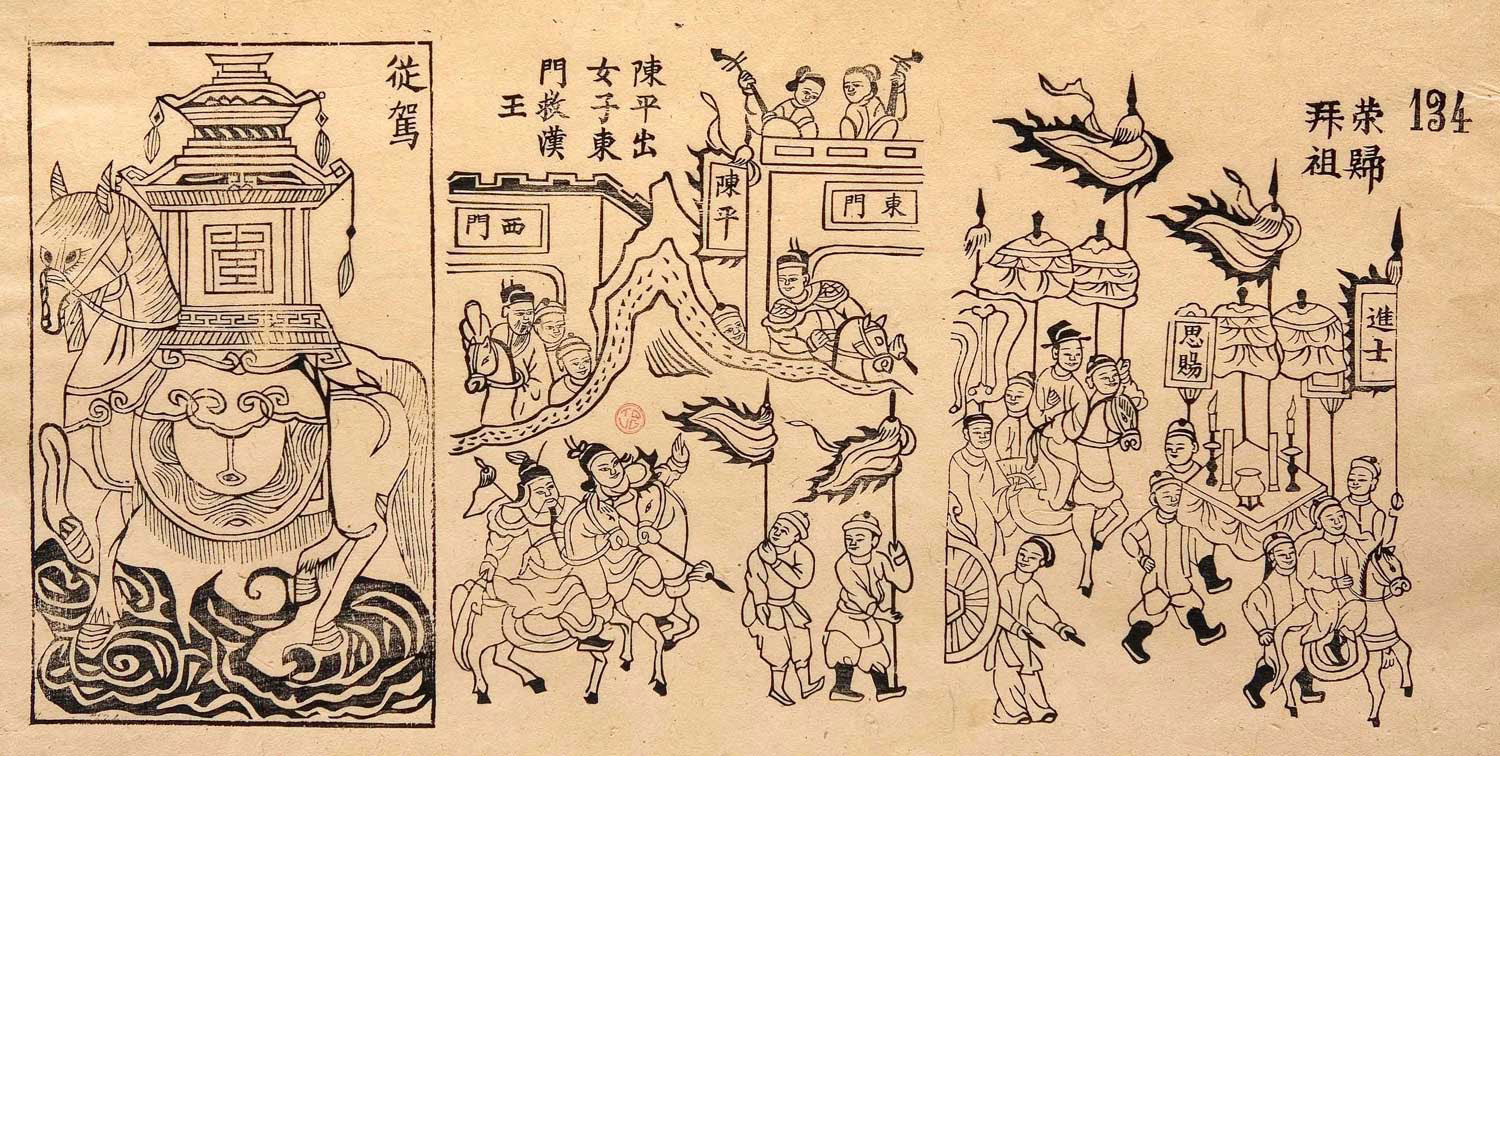 從駕
陳平出
女子東
門救漢
王
陳平
門東
門西
134
荣歸
拜祖
進士
恩賜